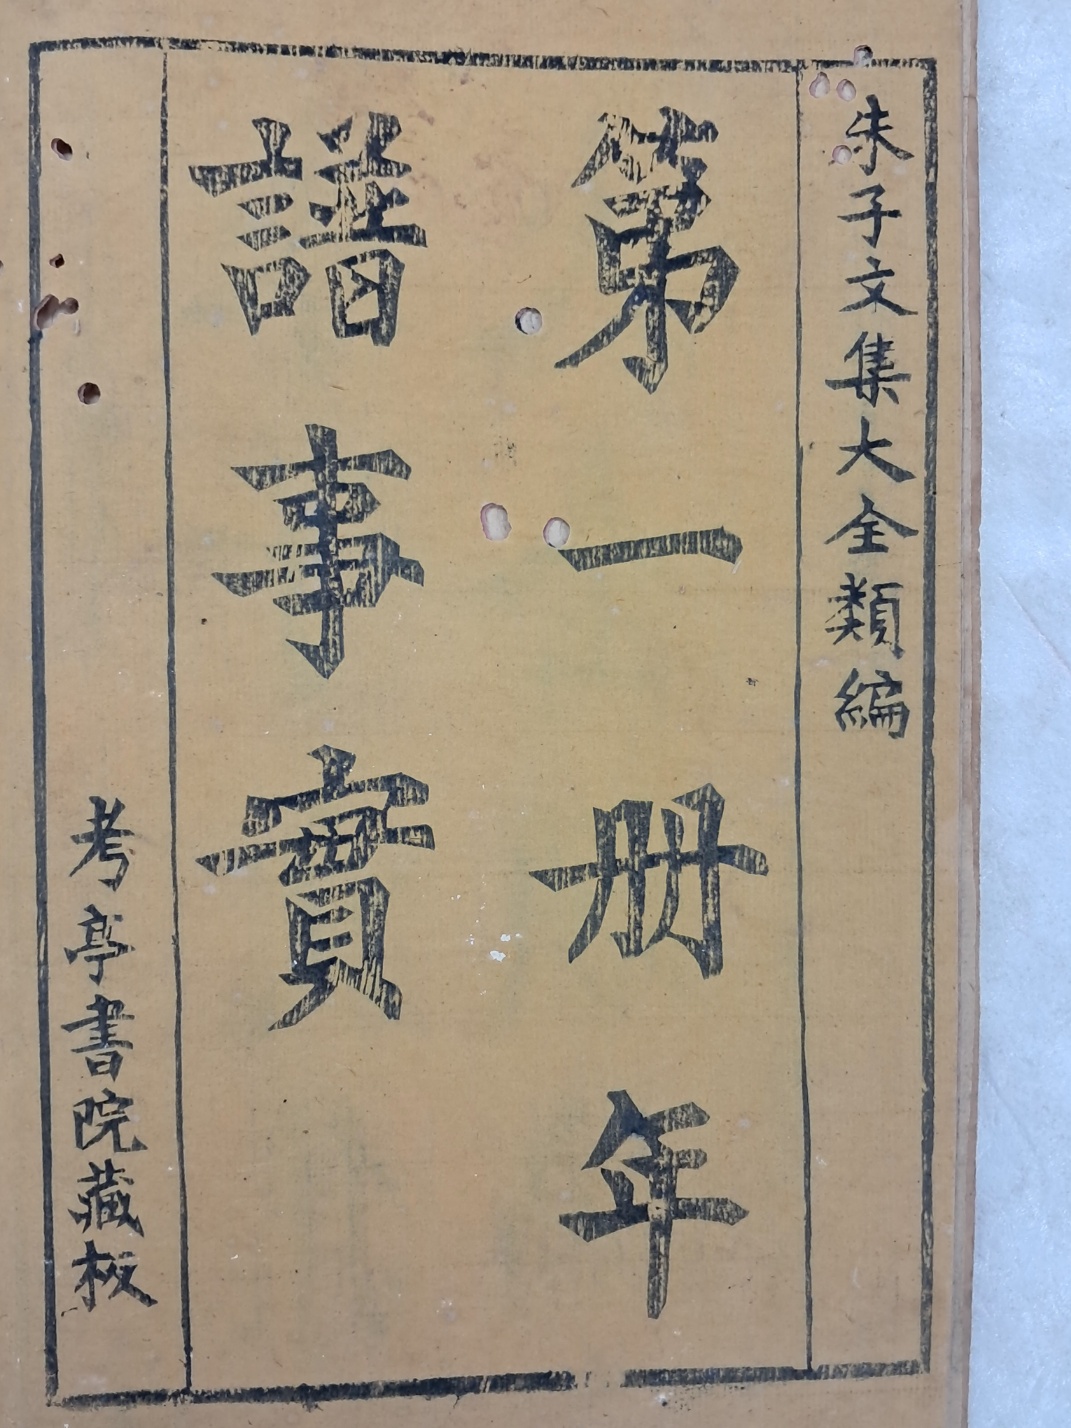 朱子文集大全類編
第一册年
譜事實
考亭書院藏板